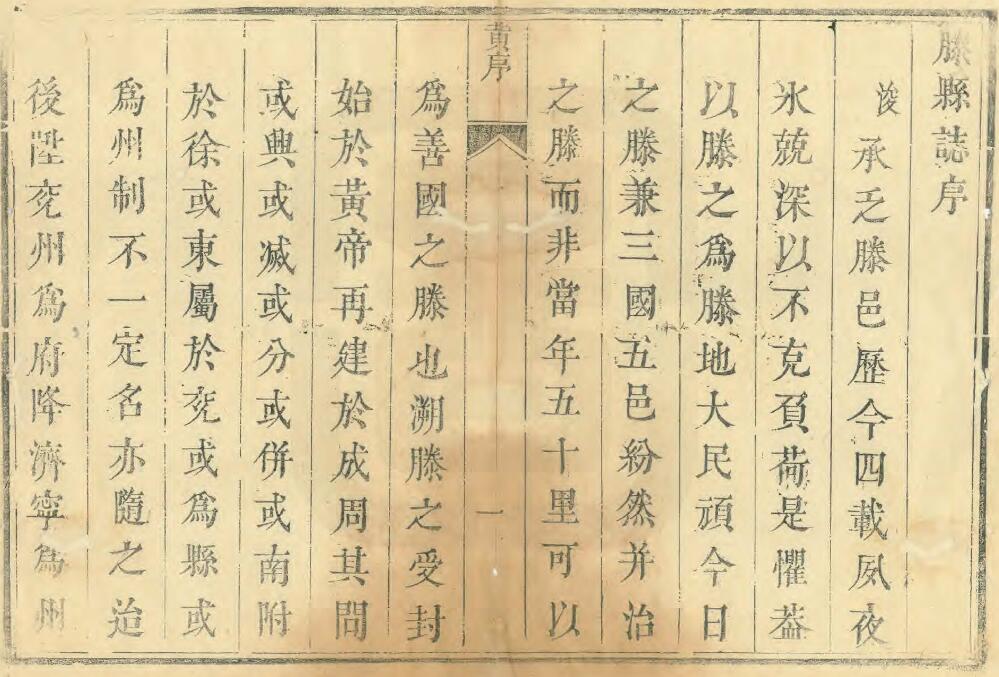 滕縣誌序
浚承乏滕邑歷今四載夙夜
氷兢深以不克負荷是懼葢
以滕之爲滕地大民頑今日
之滕兼三國五邑紛然并治
之滕而非當年五十里可以
黄序
一
爲善國之滕也溯滕之受封
始於黃帝再建於成周其問
或興或滅或分或併或南附
於徐或東屬於兖或爲縣或
爲州制不一定名亦隨之迨
後陞兖州爲府降濟寧爲州